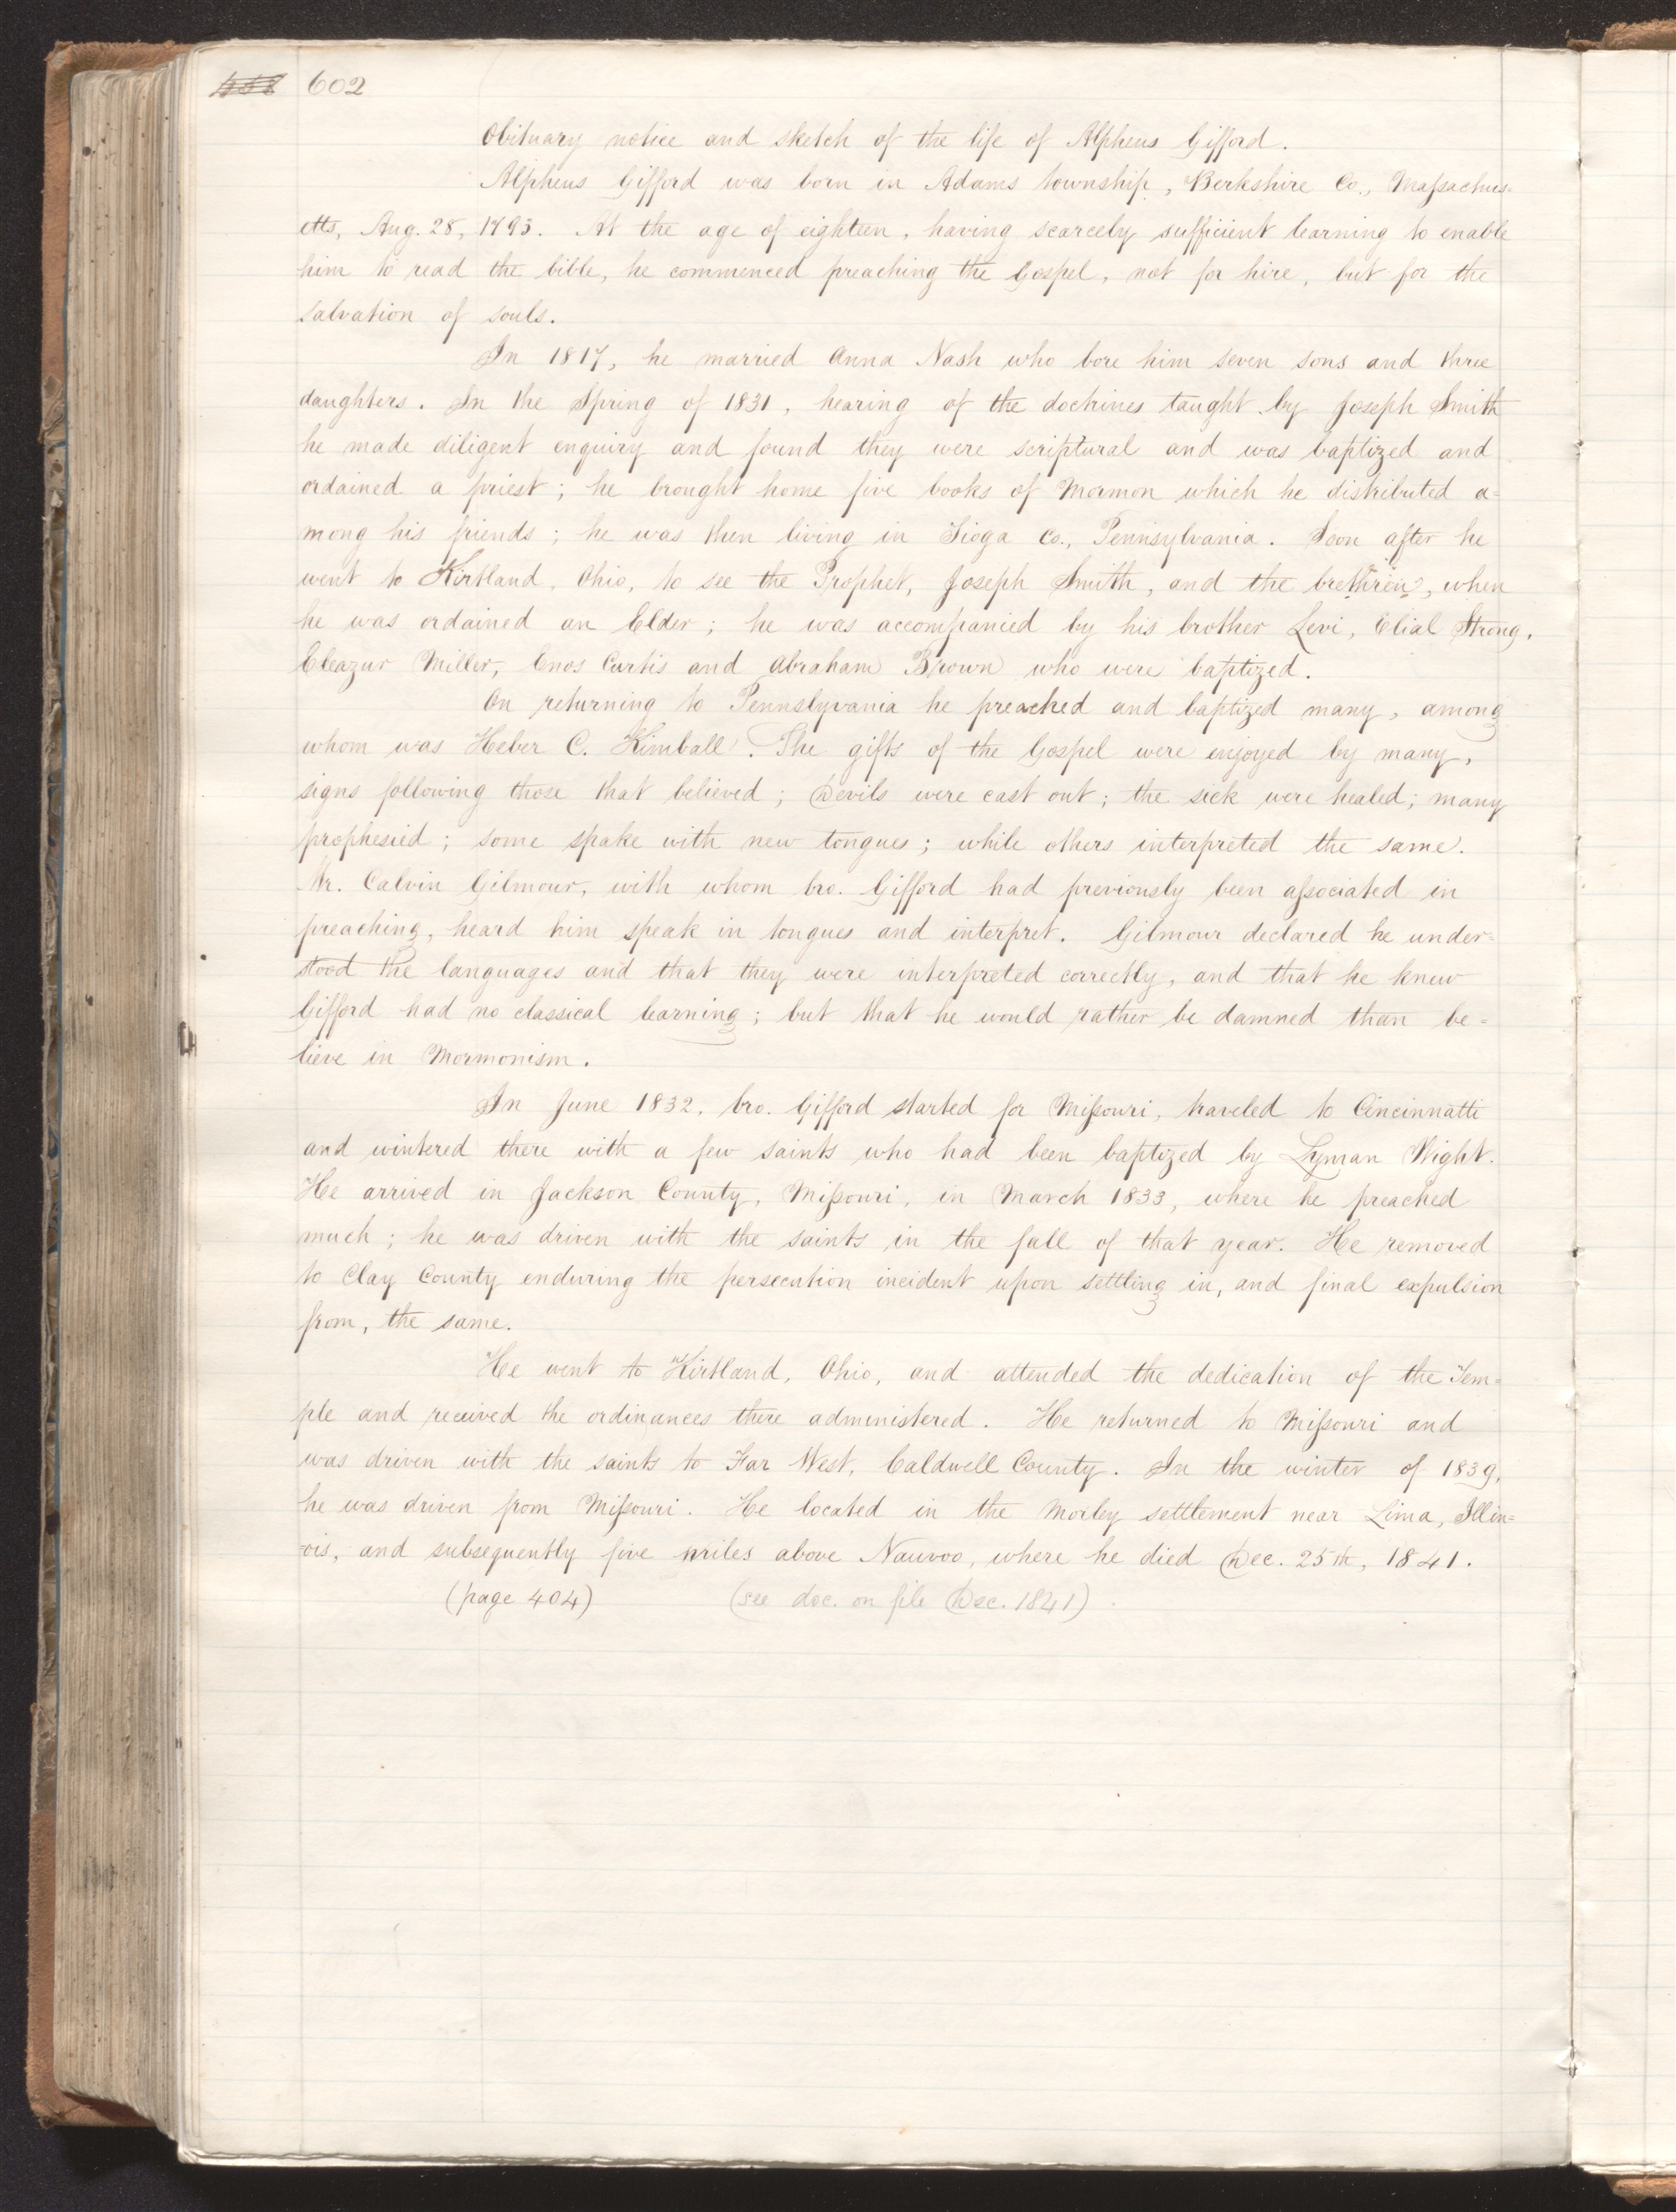 602
Obituary notice and sketch of the life of Alpheus Gifford.
Alpheus Gifford was born in Adams township, Berkshire Co., Massachus-
etts, Aug. 28, 1793. At the age of eighteen, having scarcely sufficient learning to enable
him to read the bible, he commenced preaching the Gospel, not for hire, but for the
salvation of souls.
In 1817, he married Anna Nash who bore him seven sons and three
daughters. In the Spring of 1831, hearing of the doctrines taught by Joseph Smith
he made diligent enquiry and found they were scriptural and was baptized and
ordained a priest; he brought home five books of Mormon which he distributed a=
mong his friends; he was then living in Tioga Co., Pennsylvania. Soon after he
went to Kirtland, Ohio, to see the Prophet, Joseph Smith, and the brethren, when
he was ordained an Elder; he was accompanied by his brother Levi, Elial Strong,
Eleazur Miller, Enos Curtis and Abraham Brown who were baptized.
On returning to Pennslyvania he preached and baptized many, among
whom was Heber C. Kimball. The gifts of the Gospel were enjoyed by many,
signs following those that believed; Devils were cast out; the sick were healed; many
prophesied; some spake with new tongues; while others interpreted the same.
Mr. Calvin Gilmour, with whom bro. Gifford had previously been associated in
preaching, heard him speak in tongues and interpret. Gilmour declared he under=
stood the languages and that they were interpreted correctly, and that he knew
Gifford had no classical learning; but that he would rather be damned than be=
lieve in Mormonism.
In June 1832, bro. Gifford started for Missouri, traveled to Cincinnatti
and wintered there with a few saints who had been baptized by Lyman Wight.
He arrived in Jackson County, Missouri, in March 1833, where he preached
much; he was driven with the saints in the fall of that year. He removed
to Clay County enduring the persecution incident upon settling in, and final expulsion
from, the same.
He went to Kirtland, Ohio, and attended the dedication of the Tem=
ple and received the ordinances there administered. He returned to Missouri and
was driven with the saints to Far West, Caldwell County. In the winter of 1839,
he was driven from Missouri. He located in the Morley settlement near Lima, Illin=
=ois, and subsequently five miles above Nauvoo, where he died Dec. 25th, 1841.
(page 404) (see doc. on file Dec. 1841)